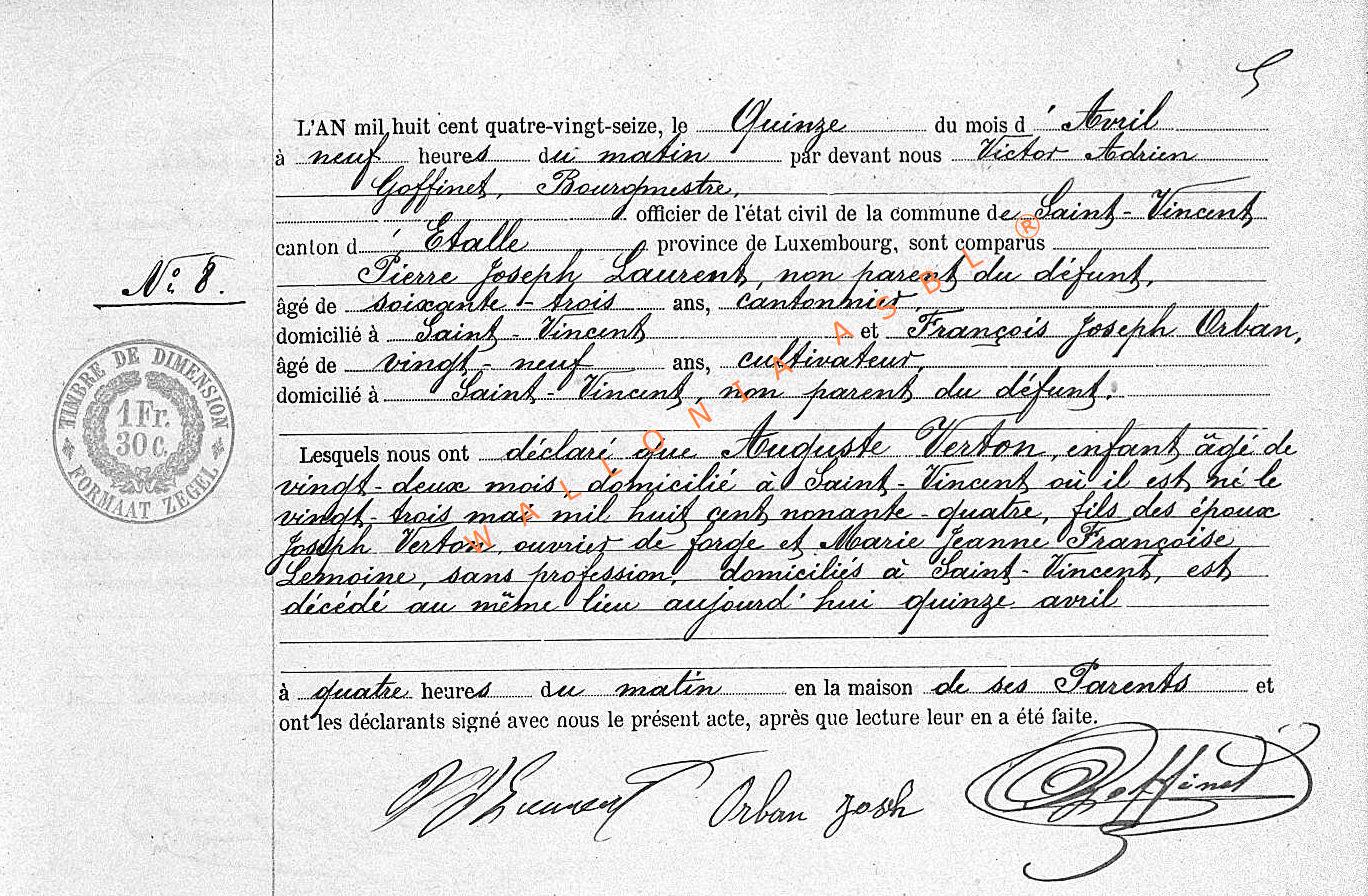 5
L'AN mil huit cent quatre-vingt-seize, le Quinze du mois d' Avril
à neuf heures du matin par devant nous Victor Adrien
Goffinet, Bourgmestre,
officier de l'état civil de la commune de Saint-Vincent
canton d' Etalle, province de Luxembourg, sont comparus
Pierre Joseph Laurent, non parent du défunt,
âgé de soixante-trois ans, cantonnier,
domicilié à Saint-Vincent et François Joseph Orban,
âgé de vingt-neuf ans, cultivateur,
domicilié à Saint-Vincent, non parent du défunt.
Lesquels nous ont déclaré que Auguste Verton, enfant âgé de
vingt-deux mois, domicilié à Saint-Vincent où il est né le
vingt-trois mai mil huit cent nonante-quatre, fils des époux
Joseph Verton, ouvrier de forge et Marie Jeanne Françoise
Lemoine, sans profession, domiciliés à Saint-Vincent, est
décédé au même lieu aujourd'hui quinze avril
à quatre heures du matin en la maison de ses Parents et
ont les déclarants signé avec nous le présent acte, après que lecture leur en a été faite.
Laurent Orban Josh Goffinet
No 8.
TIMBRE DE DIMENSION
1 Fr.
30 C.
FORMAAT ZEGEL
WALLONIA ASBL ®